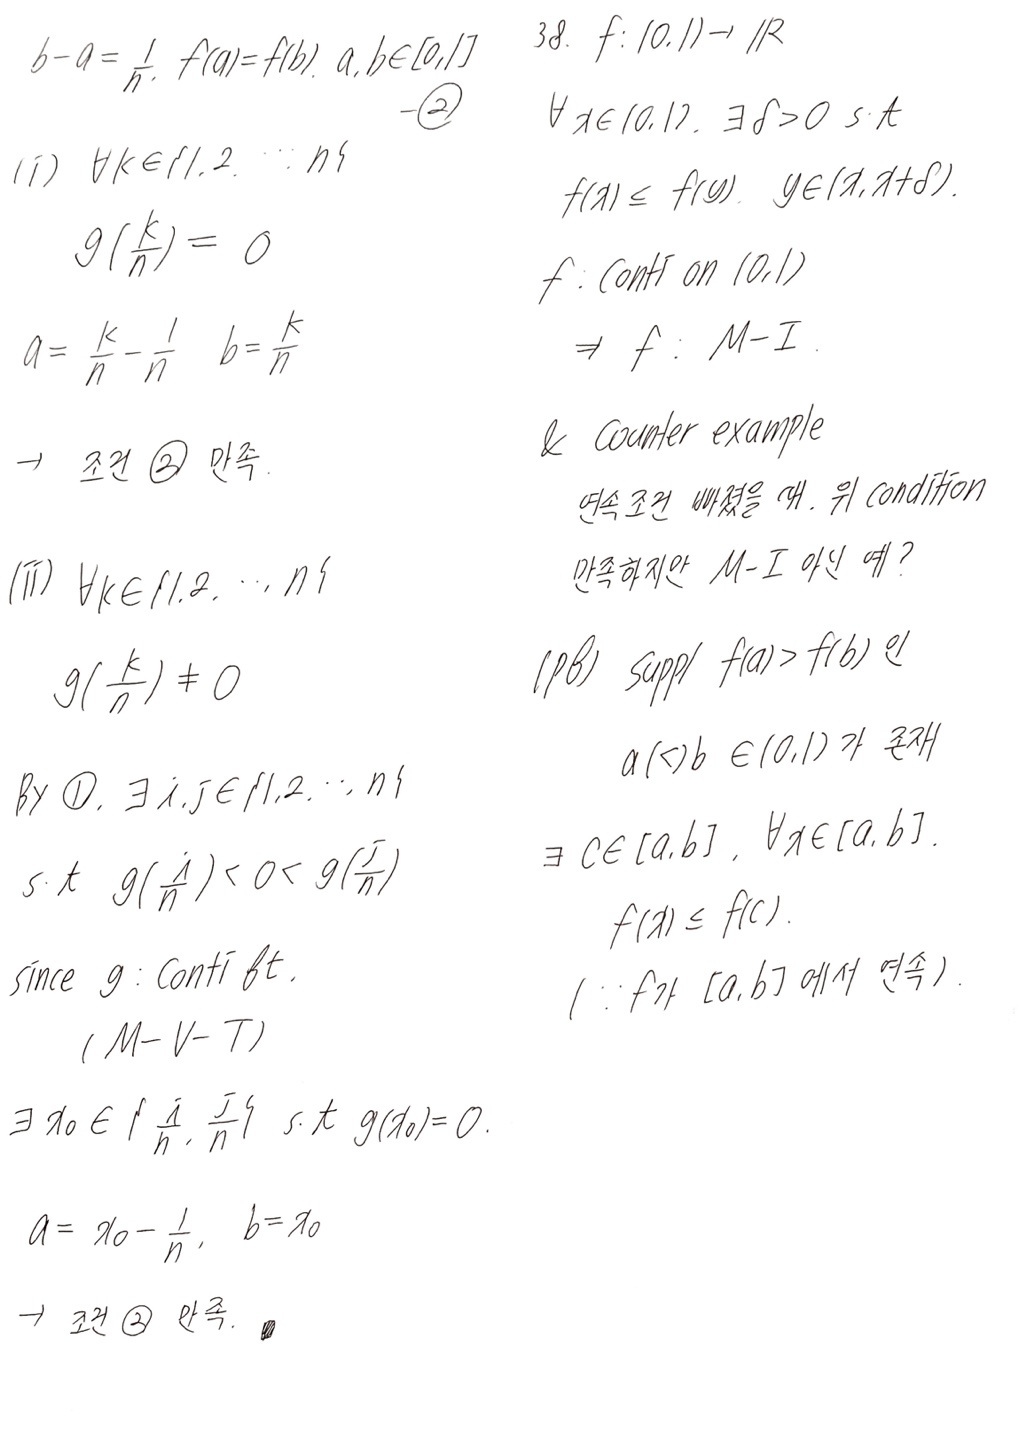 b-a = 1/n. f(a)=f(b). a,b∈[0,1]
-②
(i) ∀k∈{1,2. ⋯ n}
g(k/n) = 0
a = k/n - 1/n b = k/n
→ 조건 ② 만족.
(ii) ∀k∈{1,2. ⋯, n}
g(k/n) ≠ 0
By ①. ∃i,j∈{1,2. ⋯, n}
s.t g(i/n) < 0 < g(j/n)
since g : conti ft.
(M-V-T)
∃x₀ ∈ { i/n, j/n } s.t g(x₀)=0.
a = x₀ - 1/n, b = x₀
→ 조건 ② 만족.
38. f: (0,1) → ℝ
∀x∈(0,1). ∃δ>0 s.t
f(x) ≤ f(y). y∈(x, x+δ).
f : conti on (0,1)
⇒ f : M-I.
& counter example
연속조건 빠졌을 때. 위 condition
만족하지만 M-I 아닌 예?
(pf) suppl f(a)>f(b) 인
a(<)b ∈(0,1)가 존재
∃ c∈[a,b], ∀x∈[a,b].
f(x) ≤ f(c).
(∵ f가 [a,b]에서 연속).